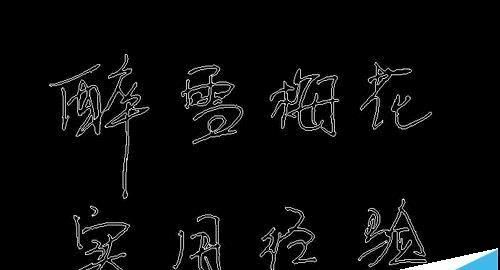 醉雪梅花
实用经验